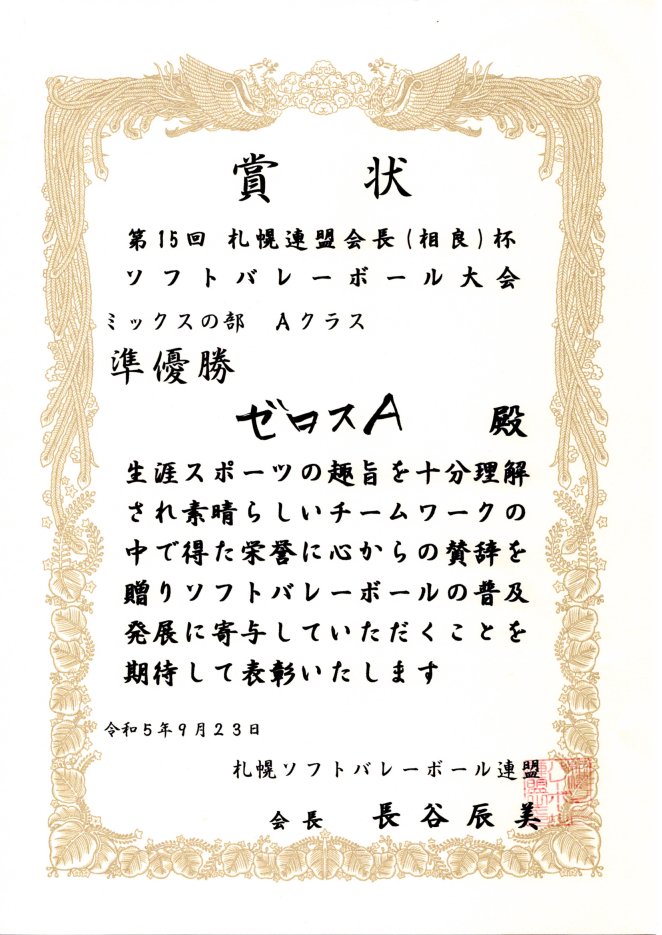 賞状
第15回 札幌連盟会長(相良)杯
ソフトバレーボール大会
ミックスの部 Aクラス
準優勝
ゼロスA 殿
生涯スポーツの趣旨を十分理解
され素晴らしいチームワークの
中で得た栄誉に心からの賛辞を
贈りソフトバレーボールの普及
発展に寄与していただくことを
期待して表彰いたします
令和5年9月23日
札幌ソフトバレーボール連盟
会長 長谷辰美